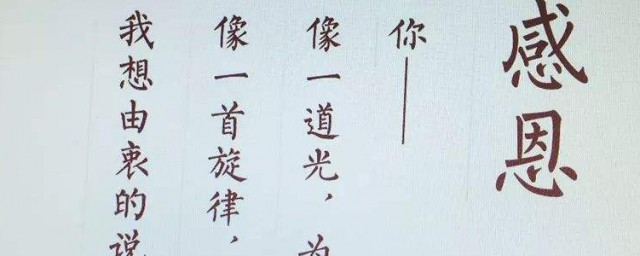 感恩
你——
像一道光，为
像一首旋律，
我想由衷的说